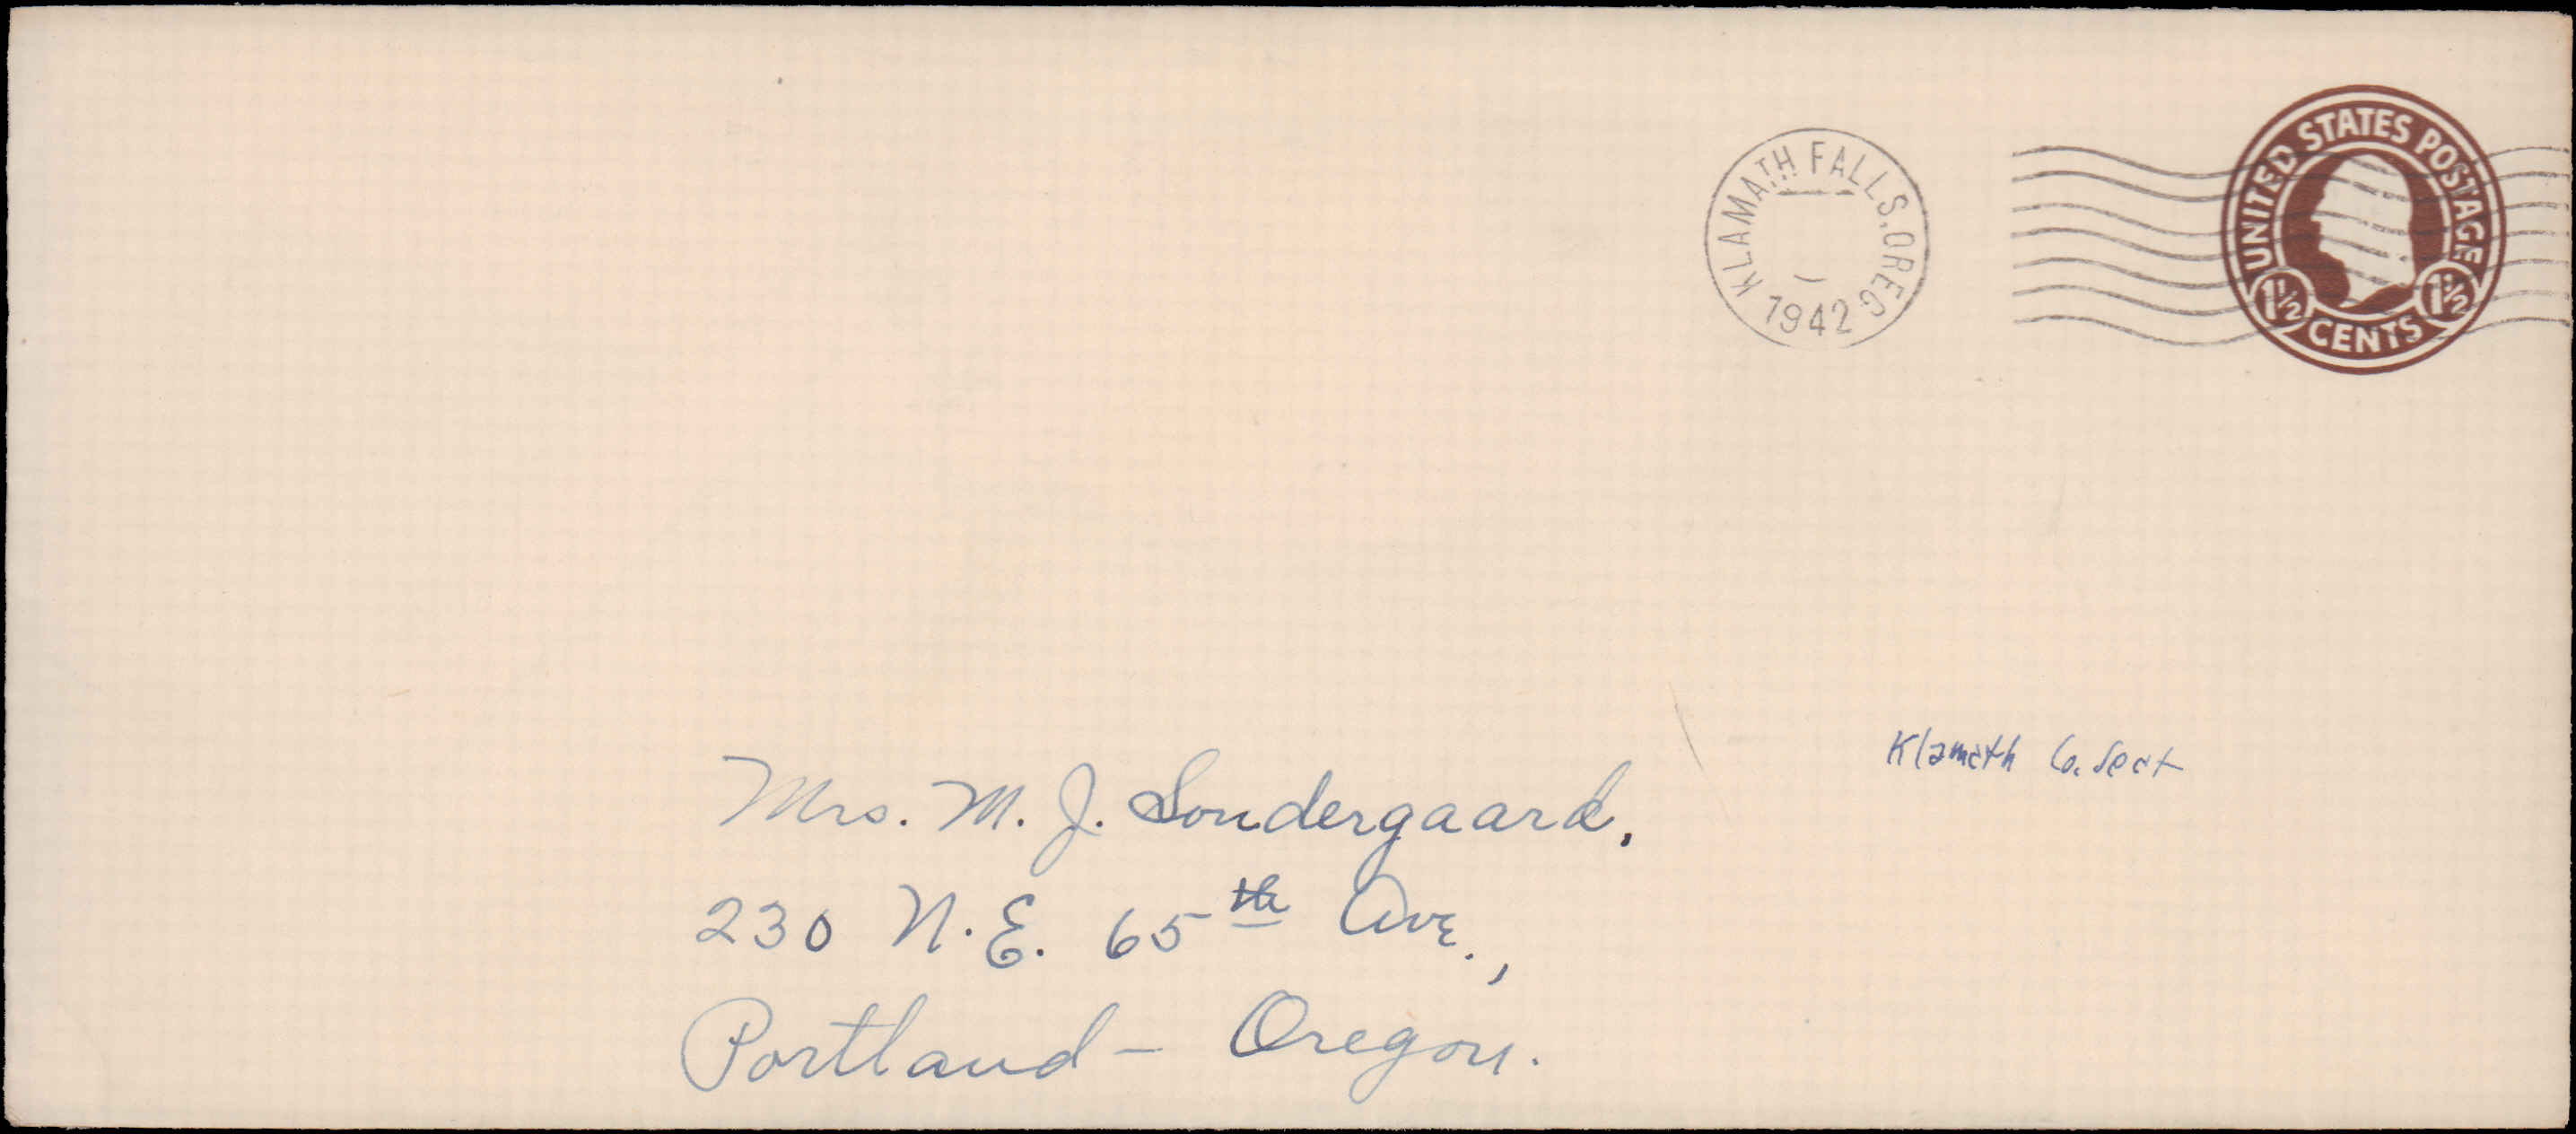 KLAMATH FALLS, OREG.
1942
UNITED STATES POSTAGE
1½ 1½
CENTS
Klamath Co. Seat
Mrs. M. J. Sondergaard,
230 N.E. 65th Ave.,
Portland - Oregon.